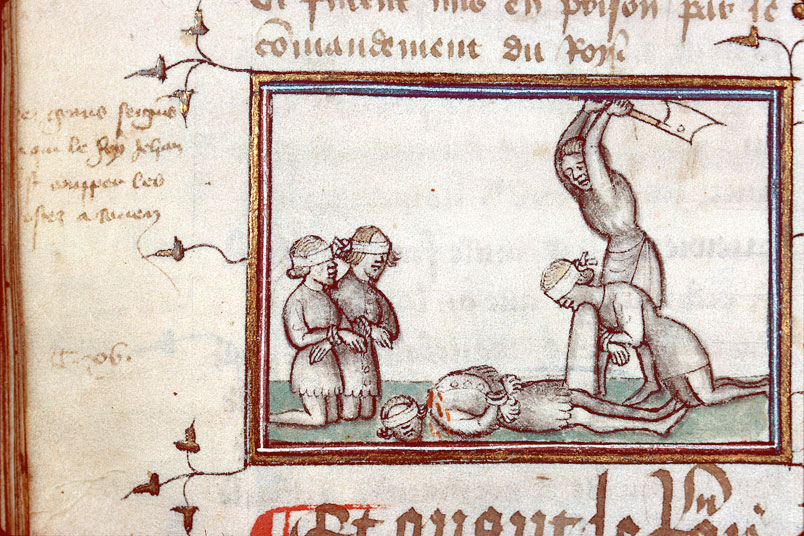 Et furent mis en prison par le
cōmandement du Roy
des grans seign̄s
que le Roy Jehan
fist coupper les
testes a rouen
Et quant le Roy